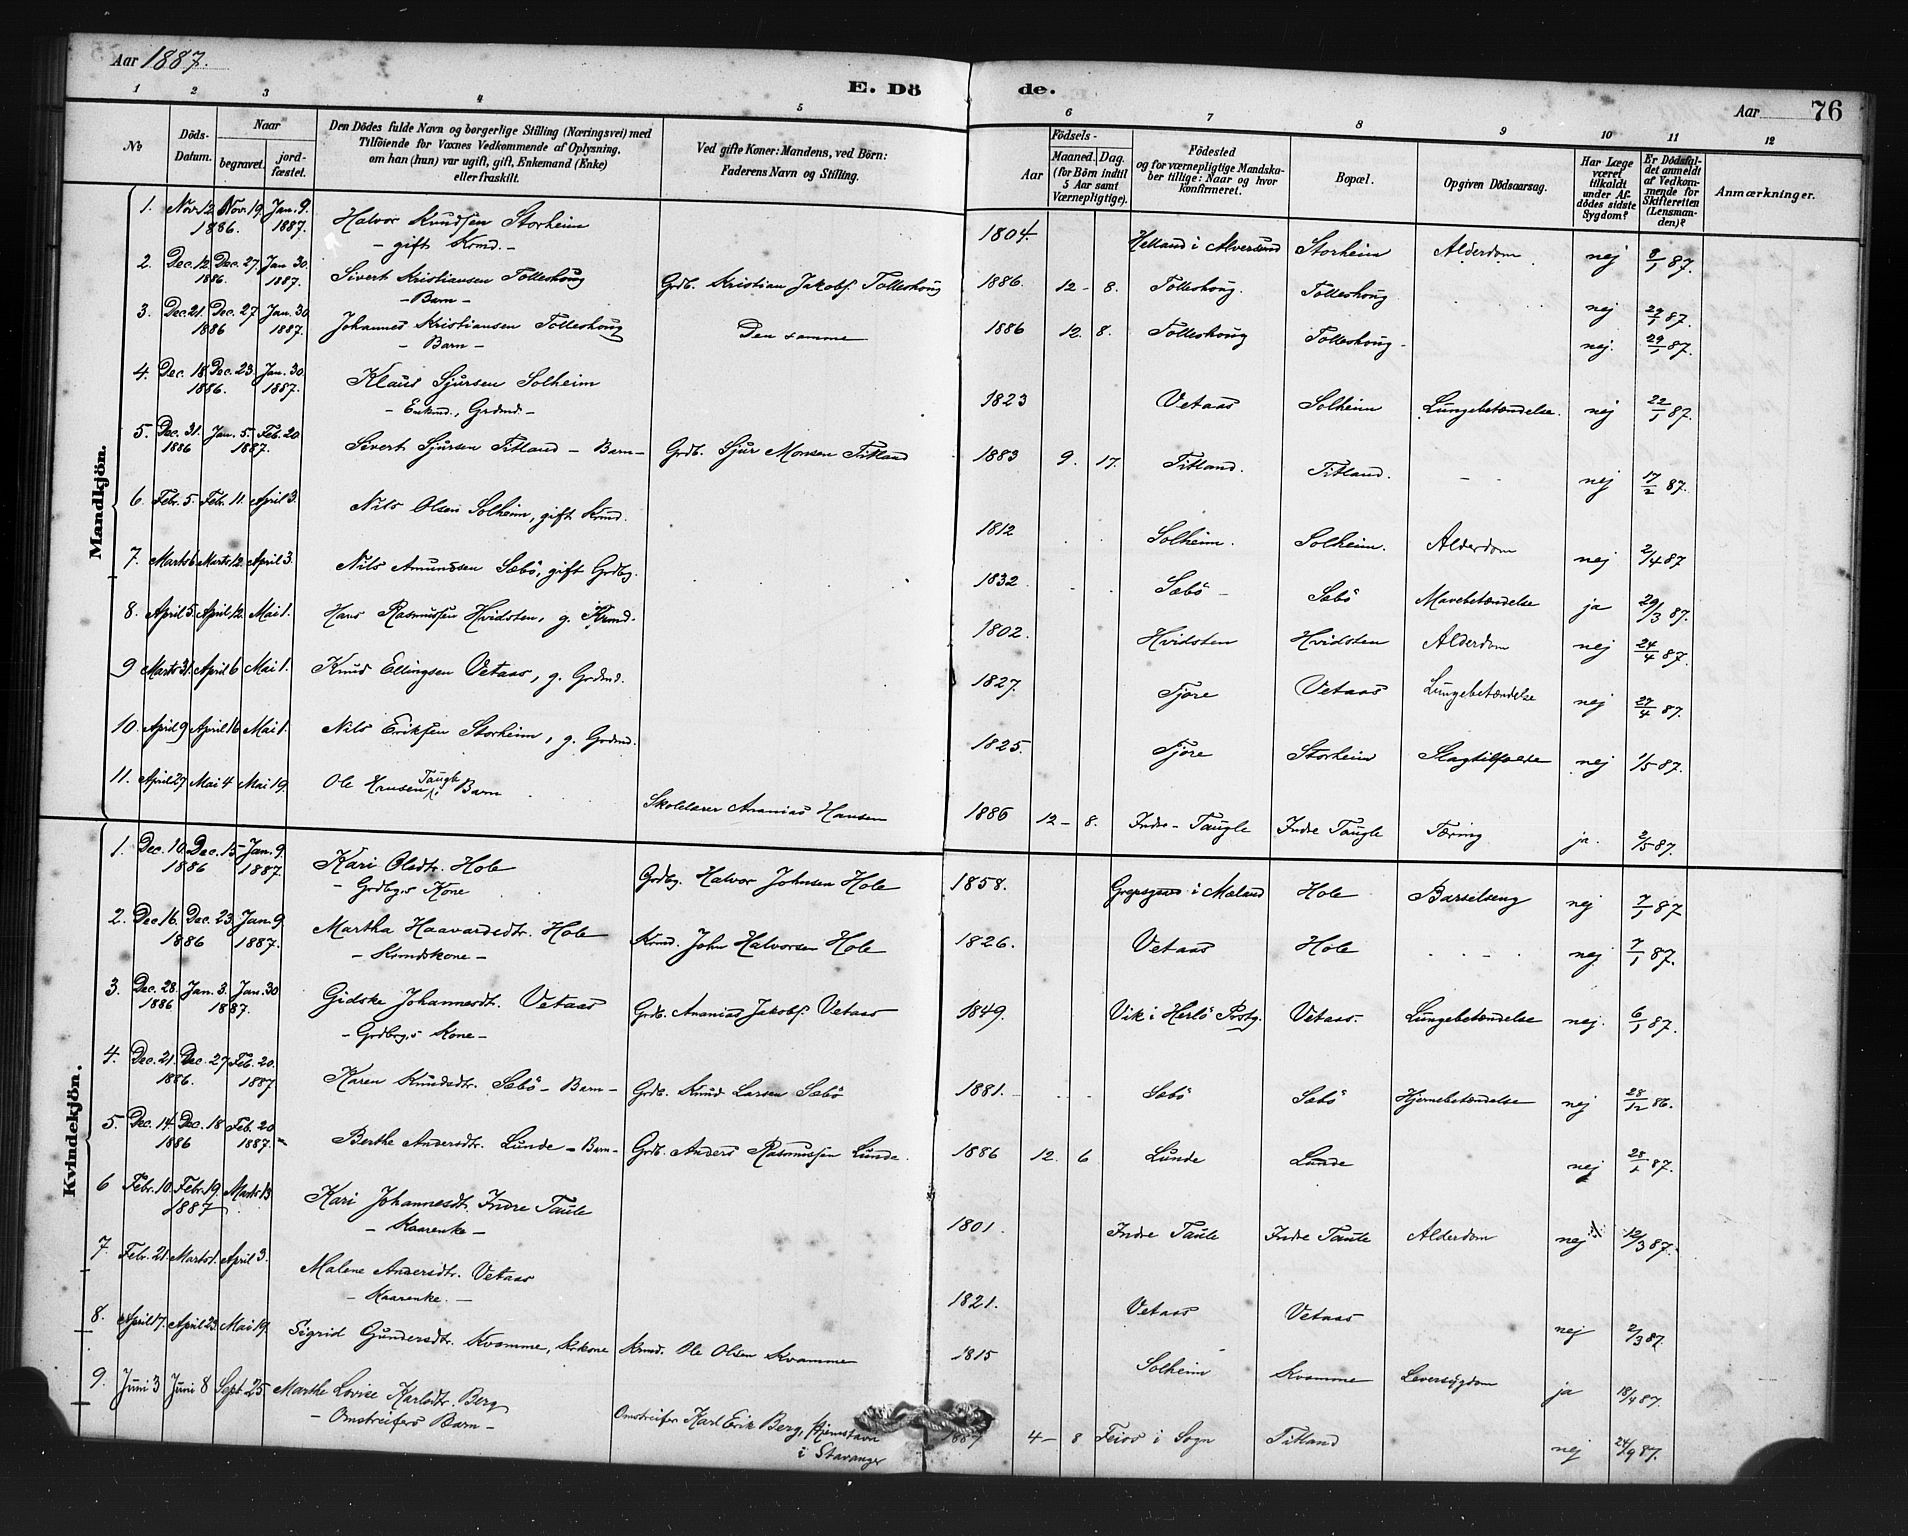 Aar 1887.
E. Dö de.
Aar 76
1 2 3 4 5 6 7 8 9 10 11 12
No
Döds-Datum.
Naar
begravet.
jord-fæstet.
Den Dödes fulde Navn og borgerlige Stilling (Næringsvei) med
Tilföiende for Voxnes Vedkommende af Oplysning,
om han (hun) var ugift, gift, Enkemand (Enke)
eller fraskilt.
Ved gifte Koner: Mandens, ved Börn:
Faderens Navn og Stilling.
Födsels-
Aar
Maaned. Dag.
(for Börn indtil
5 Aar samt
Værnepligtige).
Födested
og for værnepligtige Mandska-
ber tillige: Naar og hvor
konfirmeret.
Bopæl.
Opgiven Dödsaarsag.
Har Læge
været
tilkaldt
under Af-
dödes sidste
Sygdom?
Er Dödsfal-
det anmeldt
af Vedkom-
mende for
Skifteretten
(Lensman-
den)?
Anmærkninger.
Mandkjön.
1. Nov. 12. Nov. 19. Jan. 9. Halvor Knudsen Storheim 1804. Helland i Alversund Storheim Alderdom nej 8/1 87.
1886. 1887. - gift Krmd. -
2. Dec. 12. Dec. 27. Jan. 30. Sivert Kristiansen Tolleshoug Grdb. Kristian Jakobs. Tolleshoug 1886. 12 - 8. Tolleshoug. Tolleshoug nej 29/1 87.
1886. 1887. - Barn -
3. Dec. 21. Dec. 27 Jan. 30 Johannes Kristiansen Tolleshoug Den samme 1886 12. 8. Tolleshoug Tolleshoug nej. 29/1 87.
1886 1887. - Barn -
4. Dec. 18. Dec. 23. Jan. 30. Klaus Sjursen Solheim 1823 Vetaas Solheim Lungebetændelse. nej 22/1 87.
1886. 1887. - Enkmd., Grdmd. -
5. Dec. 31. Jan. 5. Feb. 20. Sivert Sjursen Titland - Barn - Grdb. Sjur Monsen Titland 1883 9. 17. Titland. Titland. - - nej 17/2 87.
1886 1887.
6. Febr. 5. Febr. 11. April 3. Nils Olsen Solheim, gift Krmd. 1812 Solheim. Solheim. Alderdom nej 2/4 87
7. Marts 6 Marts 12. April 3. Nils Amundsen Sæbö, gift Grdbg. 1832 Sæbö - Sæbö Mavebetændelse ja 29/3 87.
8. April 5. April 12. Mai 1. Hans Rasmussen Hvidsten, g. Krmd. 1802. Hvidsten Hvidsten Alderdom nej 24/4 87.
9 Marts 31. April 6 Mai 1. Knud Ellingsen Vetaas, g. Grdmd. 1827. Fjore Vetaas Lungebetændelse nej 27/4 87.
10. April 9 April 16. Mai 1. Nils Eriksen Storheim, g. Grdmd. 1825. Fjore Storheim Slagtilfælde nej 1/5 87.
11. April 27 Mai 4 Mai 19. Ole Hansen Taugle Barn Skolelærer Ananias Hansen 1886 12 - 8. Indre - Taugle Indre Taugle Tæring ja. 2/5 87.
Kvindekjön.
1. Dec. 10. Dec. 15 Jan. 9. Kari Olsdtr. Hole Grdbg. Halvor Johnsen Hole 1858. i Mæland Hole Barselseng nej 7/1 87
1886 1887. - Grdbgs Kone
2. Dec. 16. Dec. 23. Jan. 9 Martha Haavardsdtr. Hole Krmd. John Halvorsen Hole 1826. Vetaas Hole - - - nej 7/1 87.
1886 1887. - Krmdskone -
3. Dec. 28. Jan. 3. Jan. 30 Gidske Johannesdtr. Vetaas Grdb. Ananias Jakobs. Vetaas 1849. Vik i Herlö Prstg. Vetaas. Lungebetændelse nej. 6/1 87.
1886 1887. - Grdbrgs Kone -
4. Dec. 21. Dec. 27 Feb. 20. Karen Knudsdtr. Sæbö - Barn - Grdb. Knud Larsen Sæbö 1881. Sæbö Sæbö Hjernebetændelse nej 28/12 86.
1886. 1887
5. Dec. 14. Dec. 18 Feb. 20 Berthe Andersdtr. Lunde - Barn - Grdb. Anders Rasmussen Lunde. 1886 12. 6 Lunde Lunde nej 28/1 87.
1886 1887.
6 Febr. 10. Febr. 19. Marts 13 Kari Johannesdtr. Indre Taule 1801. Indre Taule Indre Taule Alderdom nej 12/3 87.
1887 - Kaarenke -
7. Febr. 21. Marts 1. April 3. Malene Andersdtr. Vetaas 1821. Vetaas Vetaas nej 2/3 87
- Kaarenke. -
8. April 17. April 23. Mai 19. Sigrid Gundersdtr. Kvamme, Krkone Krmd. Ole Olsen Kvamme 1815 Solheim Kvamme Leversygdom ja 18/4 87.
9. Juni 3 Juni 8 Sept. 25 Marthe Lovise Karlsdtr. Berg Omstreifer Karl Erik Berg, Hjemstavn 1887 4 - 8 Feios i Sogn Titland nej 24/9 87.
- Omstreifers Barn - i Stavanger